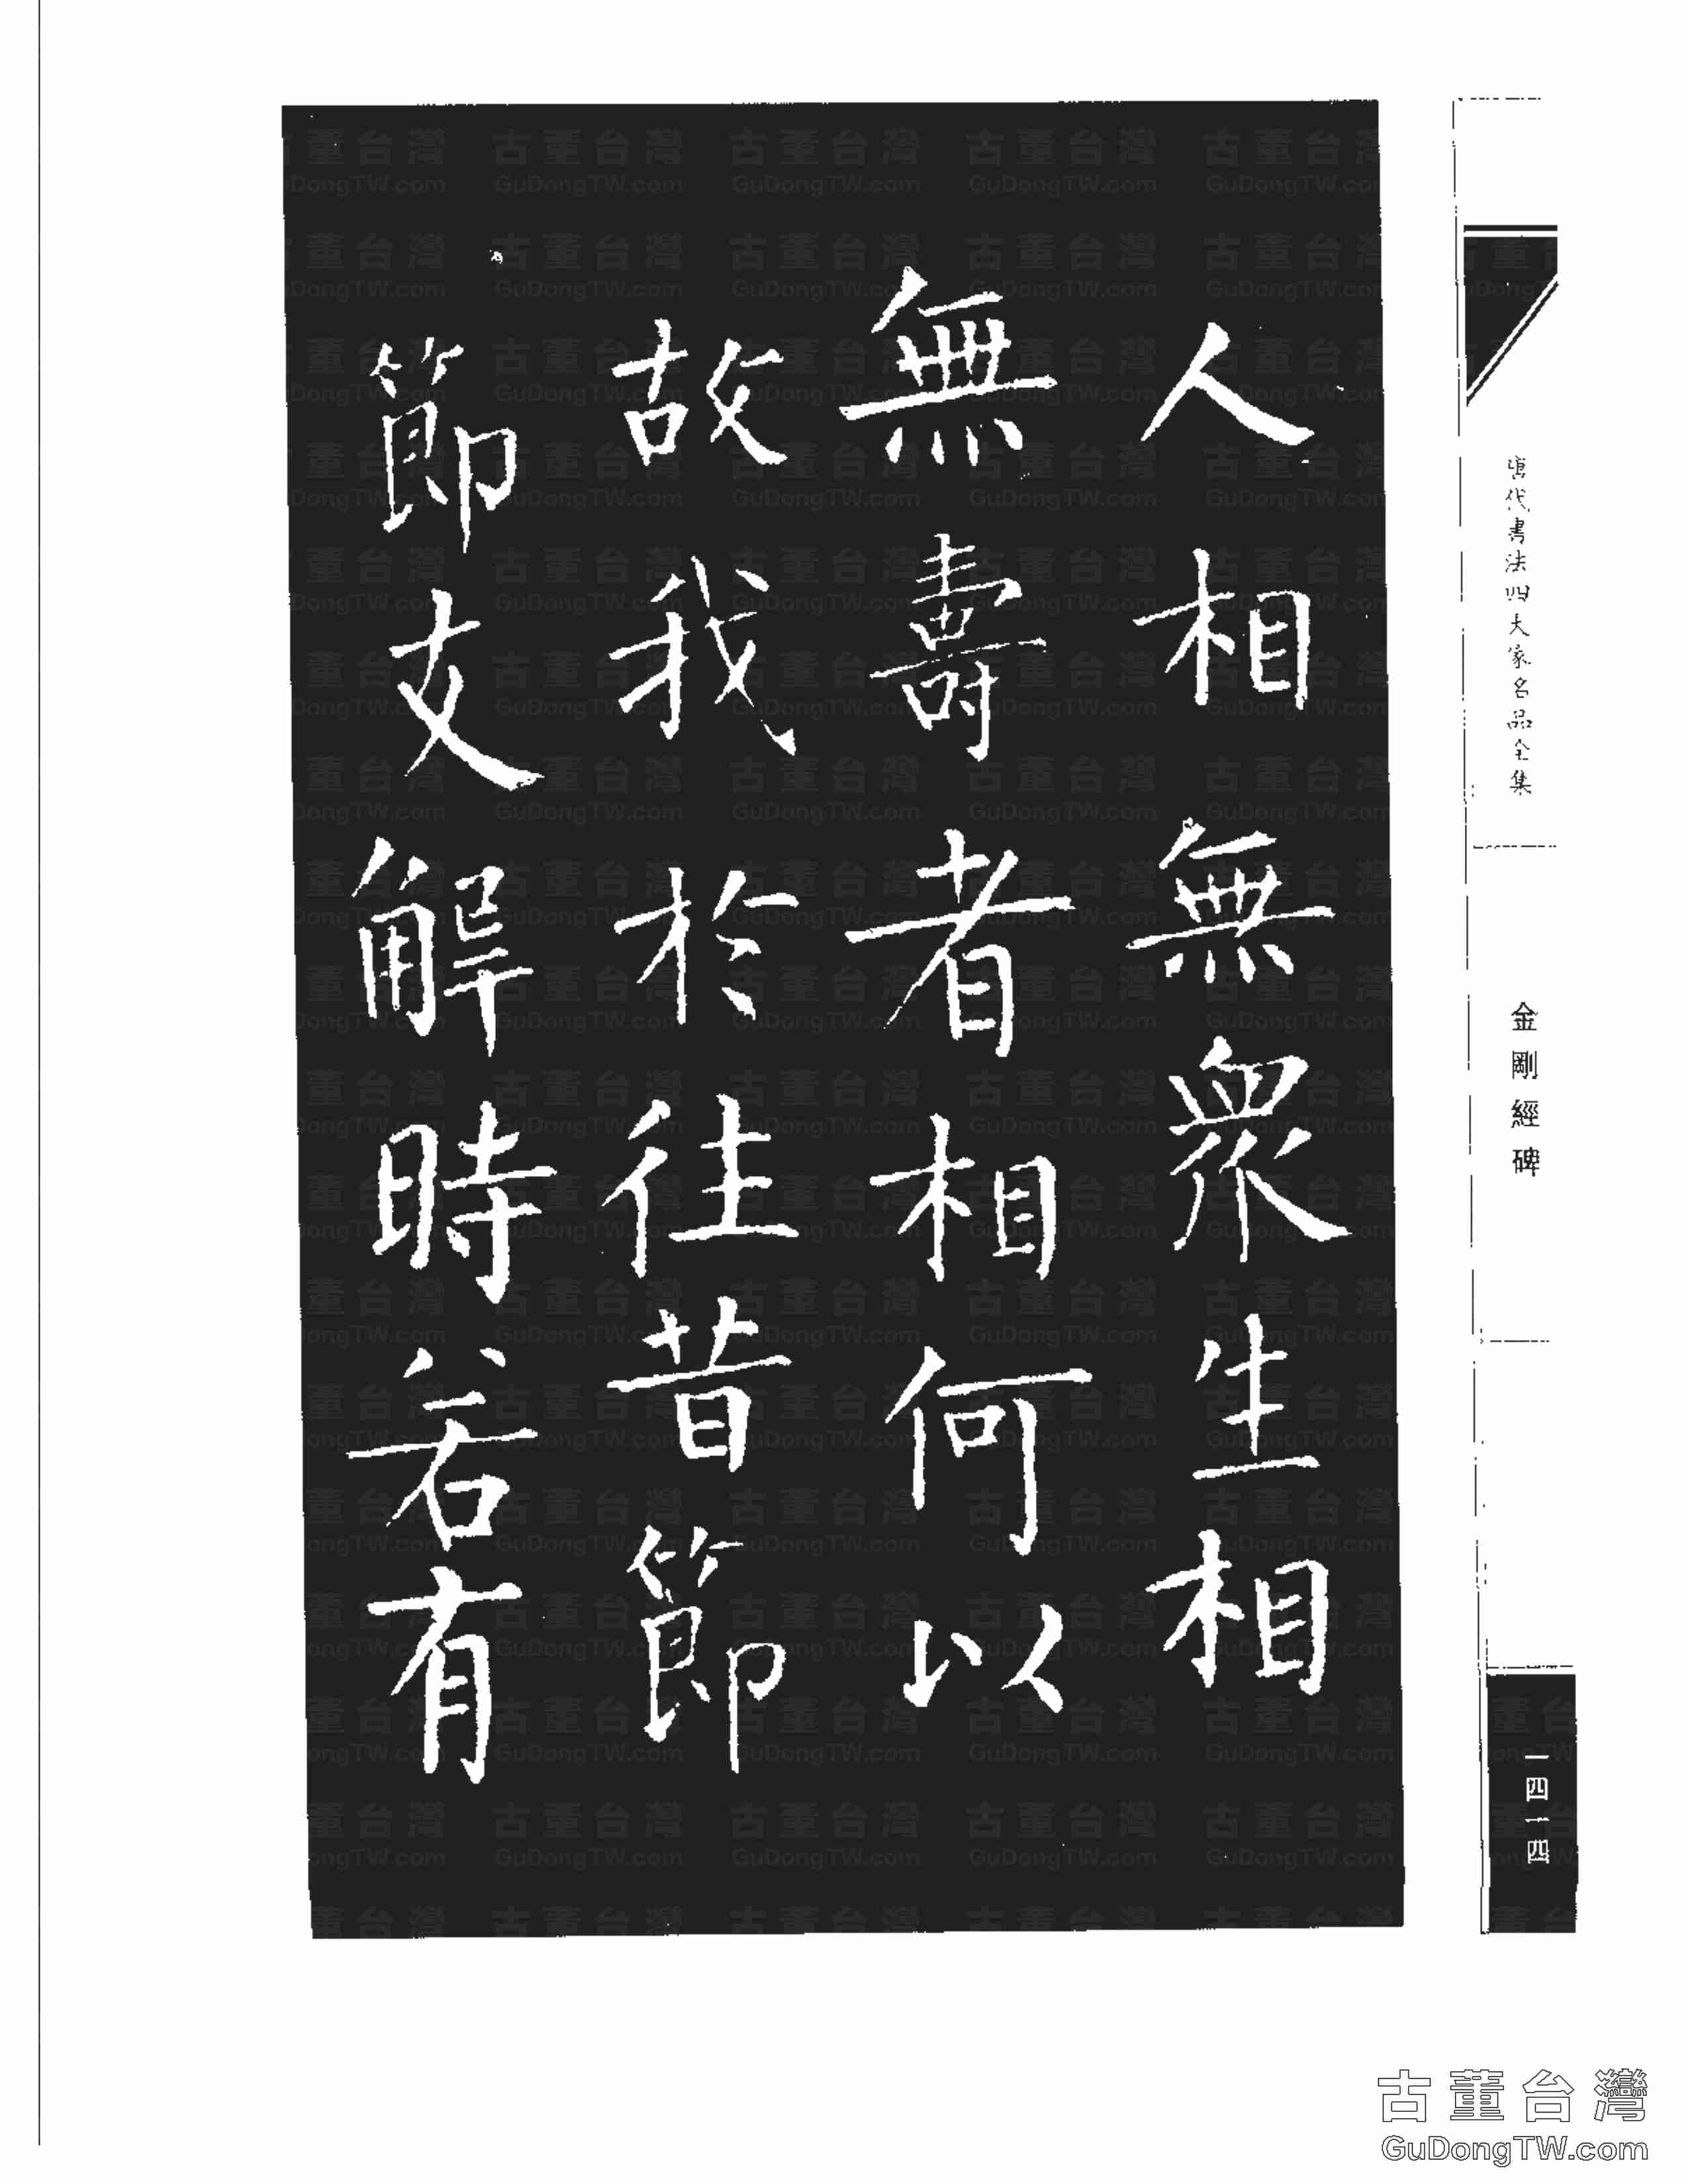 人相無眾生相
無壽者相何以
故我於往昔節
節支解時若有
唐代書法四大家名品全集
金剛經碑
一四一四
古董台灣
GuDongTW.com